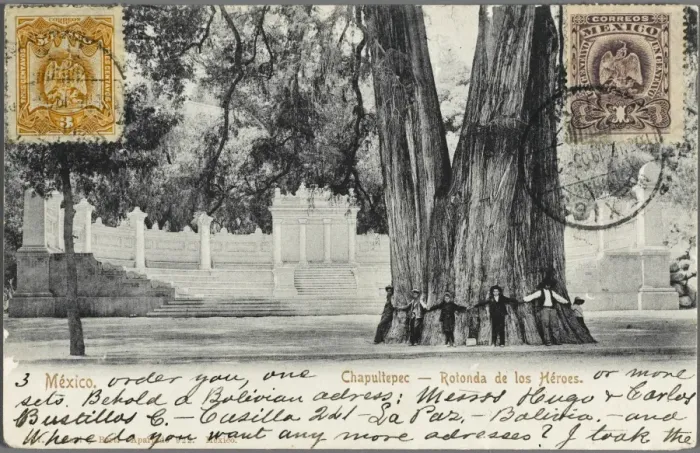 CORREOS
MEXICO
3
CORREOS
MEXICO
1
México.
Chapultepec — Rotonda de los Héroes.
3 order you, one or more
sets. Behold a Bolivian adress: Messrs Hugo & Carlos
Bustillos C. - Casilla 241 - La Paz, - Bolivia, - and
Where do you want any more adresses? I took the
México.